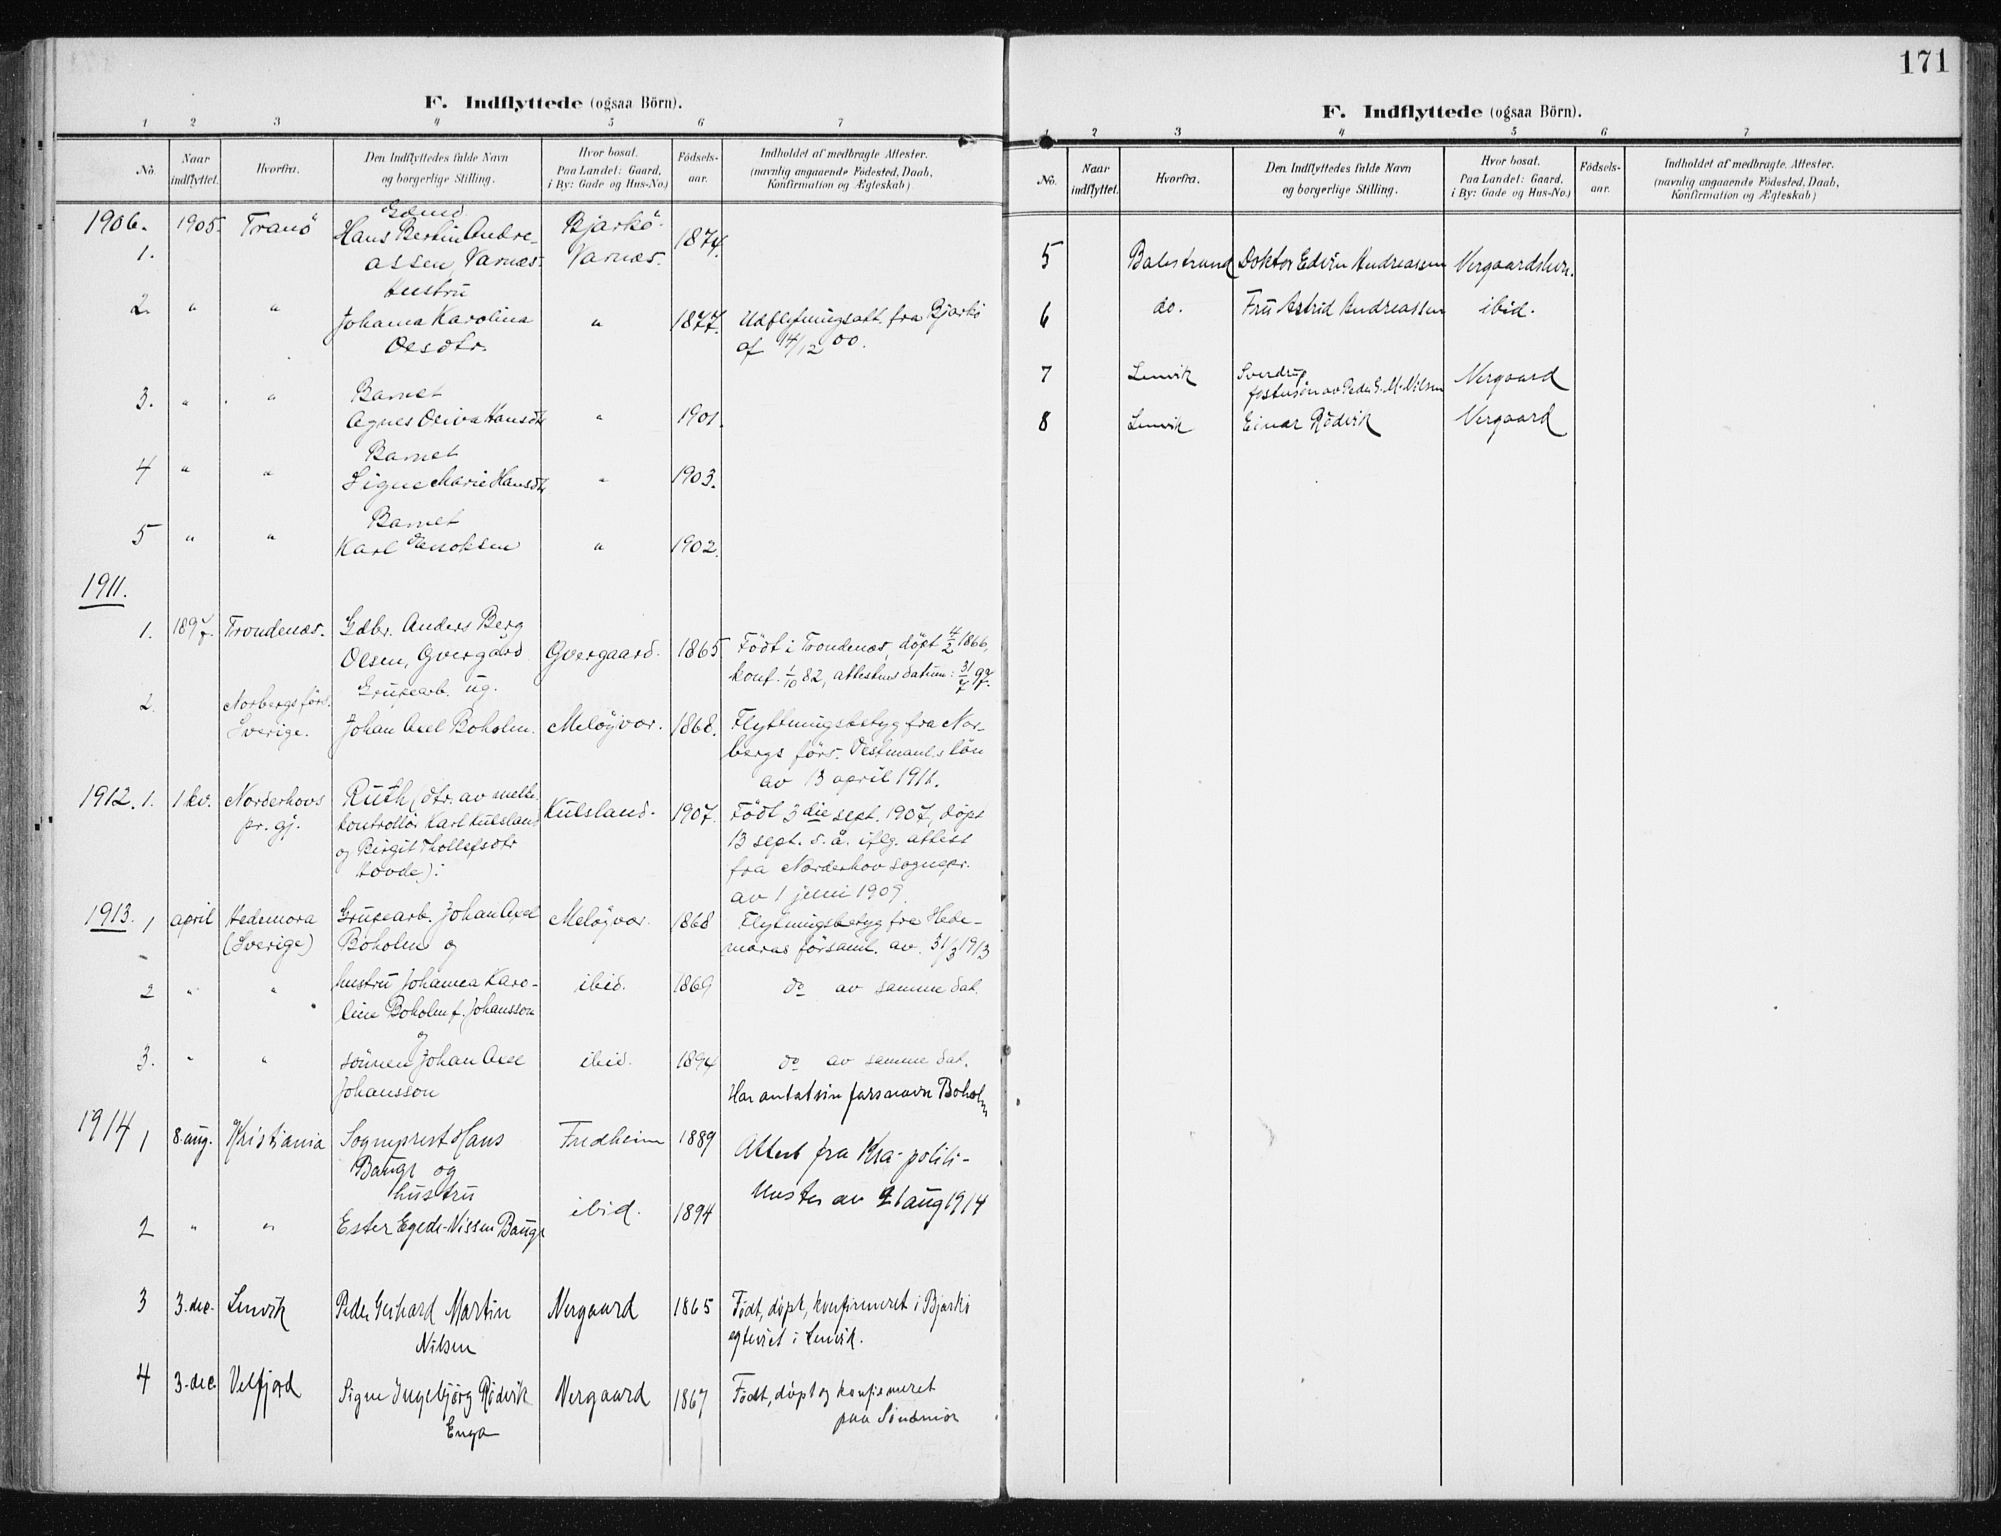 F. Indflyttede (ogsaa Börn).
1 2 3 4 5 6 7
No. Naar indflyttet. Hvorfra. Den Indflyttedes fulde Navn og borgerlige Stilling. Hvor bosat. Paa Landet: Gaard, i By: Gade og Hus-No.) Fødsels-aar. Indholdet af medbragte Attester. (navnlig angaaende Födested, Daab, Konfirmation og Ægteskab)
1906. 1905. Tranö
1. Hans Bertin Andre- Bjarkö 1874.
assen, Varnæs. Varnæs.
hustru
2. " " Johanna Karolina " 1877. Udflytningsatt. fra Bjarkö
Olsdtr. af 14/12 00.
Barnet
3. " " Agnes Oliva Hansdtr " 1901.
Barnet
4 " " Signe Marie Hansdtr " 1903.
Barnet
5 " " Karl " 1902.
1911.
1. 1897. Trondenæs. Gdbr. Anders Berg
Olsen, Gvergård Gvergaard. 1865 Födt i Trondenæs, döpt 4/2 1866,
konf. 1/10 82, attestens datum: 31/7 97.
Grubearb. ug.
2. Norbergs förs.
Sverige. Johan Axel Boholm. Meløyvær. 1868. Flyttningsbetyg fra Nor-
bergs förs. Vestmanl.s län
av 13 april 1911.
1912. 1. 1 kv. Norderhovs Ruth (dtr. av melke- Kulsland. 1907. Födt 3die sept. 1907, döpt
pr. gj. kontrollör Karl Kulsland 13 sept. s. å. iflg. attest
og Birgit Thollefsdtr fra Norderhov sognepr.
Hovde): av 1 juni 1909.
1913. 1 april Hedemora Grubearb. Johan Axel Meløyvær. 1868 Flyttningsbetyg fra Hede-
(Sverige) Boholm og moras församl. av. 31/3 1913
2 " " hustru Johanna Karo- ibid. 1869 do av samme dat.
line Boholm f. Johansson
og
3. " " sönnen Johan Axel ibid. 1894 do av samme dat.
Johansson Har antat sin farsnavn Boholm
1914 1 8. aug. Kristiania Sogneprest Hans Fredheim 1889 Attest fra Kra- politi-
Bauge og
hustru av 21 aug 1914
2 " " Ester Egede-Nissen Bauge ibid. 1894
3 3. dec. Lenvik Peder Gerhard Martin Nergaard 1865 Född, döpt, konfirmeret i Bjarkö
Nilsen egteviet i Lenvik.
4 3. dec. Velfjord Signe Ingebjörg Rödvik Nergaard 1867 Född, döpt og konfirmeret
Enga paa Söndmör
171
F. Indflyttede (ogsaa Börn).
1 2 3 4 5 6 7
No. Naar indflyttet. Hvorfra. Den Indflyttedes fulde Navn og borgerlige Stilling. Hvor bosat. Paa Landet: Gaard, i By: Gade og Hus-No.) Fødsels-aar. Indholdet af medbragte Attester. (navnlig angaaende Födested, Daab, Konfirmation og Ægteskab)
5 Balestrand Doktor Edvin Andreassen
6 do. Fru Astrid Andreassen ibid.
7 Lenvik Sverdrup Nergaard
fostersön av Peder G. M. Nilsen
8 Lenvik Einar Rödvik Nergaard